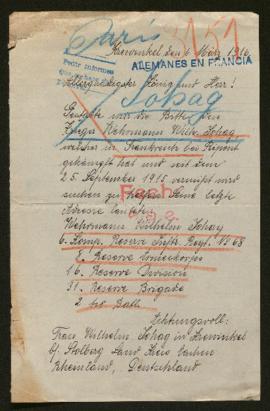 Paris
3151
Krewinkel den 6 März 1916
ALEMANES EN FRANCIA
Pedir informes
Allergnädigster König und Herr!
Sohag
Gestatte mir die Bitte den
Wehrmann Wilh. Sohag
welcher in Frankreich bei
gekämpft hat und seit dem
25. September 1915 vermißt wird
suchen zu lassen. Seine letzte
Adresse lautete:
Fecho
Wehrmann Wilhelm Sohag
6. Komp. Reserve Inftr. Regt. No 68
8. Reserve Armeekorps
16. Reserve Division
31. Reserve Brigade
2 tes Batl.
Achtungsvoll:
Frau Wilhelm Sohag in Krewinkel
b/ Stolberg Land Kreis Aachen
Rheinland, Deutschland